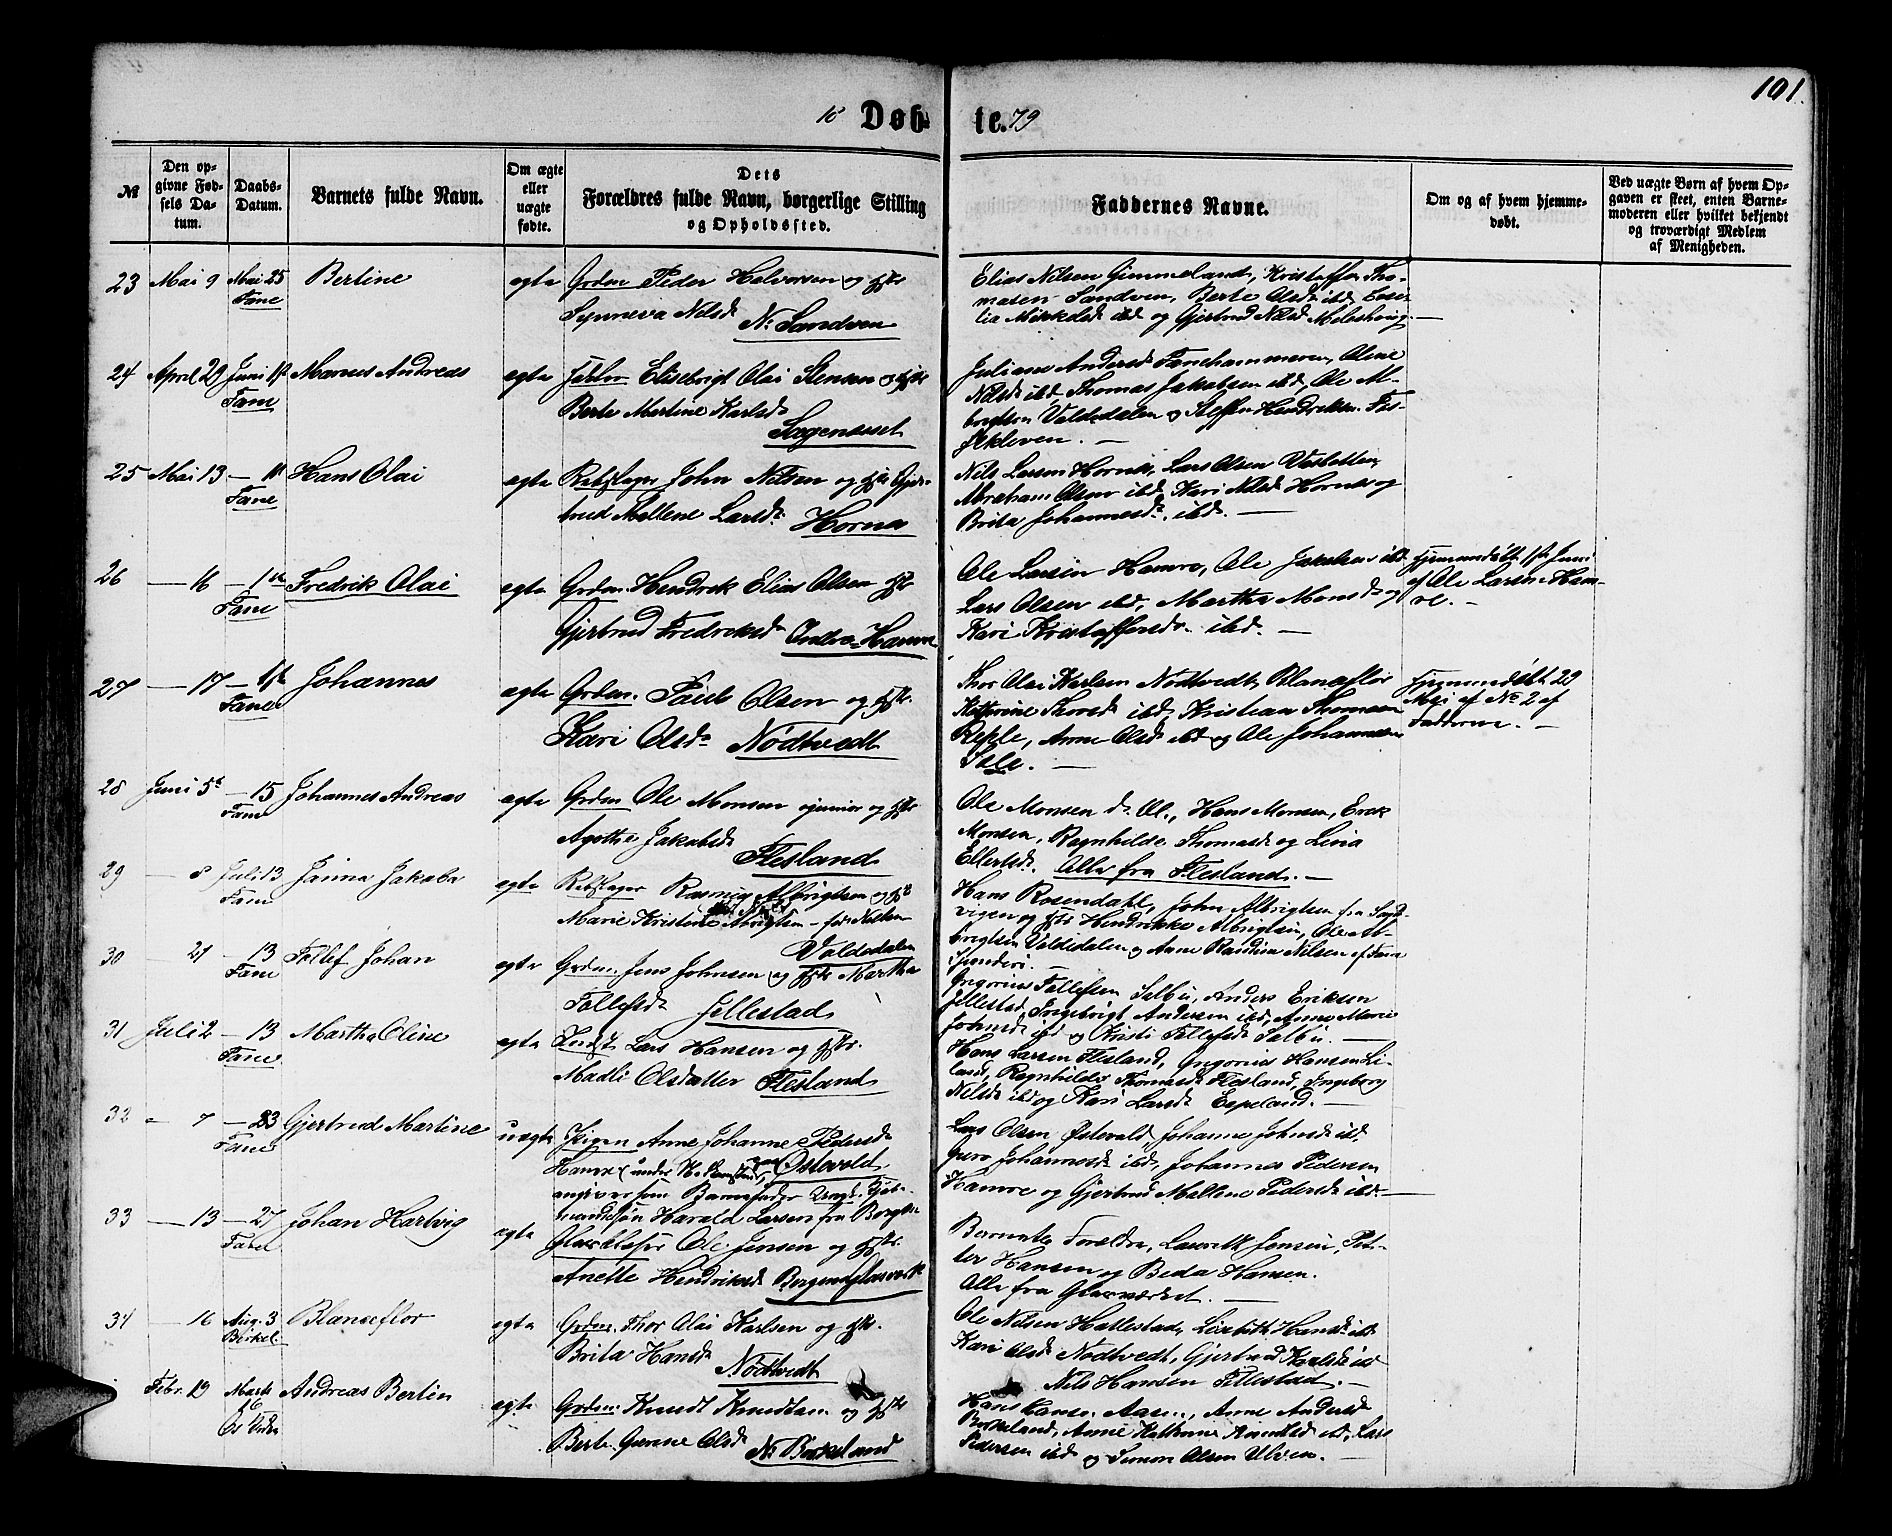 101.
18 Døb- te. 79
№
Den op-
givne Fød-
sels Da-
tum.
Daabs-
Datum.
Barnets fulde Navn.
Om ægte
eller
uægte
fødte.
Dets
Forældres fulde Navn, borgerlige Stilling
og Opholdssted.
Faddernes Navne.
Om og af hvem hjemme-
døbt.
Ved uægte Børn af hvem Op-
gaven er skeet, enten Barne-
moderen eller hvilket bekjendt
og troværdigt Medlem
af Menigheden.
23 Mai 9 Mai 25 Bertine ægte Grdm. Peder Halvorsen og Hstr
Fane
Synneva Nilsd. N. Sandven
Elias Nilsen Gimmeland, Kristoffer Tho-
masen Sandven, Berte Olsd. ibd,
lia Mikkelsd ibd og Gjertrud Nilsd
24 April 29 Juni 1ste Marnus Andreas ægte Elisebrigt Olai Stensen og Hstr
Fane
Berte Martine Karlsd.
Sagenæsset
Juliane Andersd. Fanehammeren, Oline
Nilsd ibd, Thomas Jakobsen ibd, Ole Al-
brigtsen Valdedalen og Steffen Hendriksen Fos-
sekleven.
25 Mai 13 — 1st Hans Olai ægte Rebslager John Nilsen og Hstr Gjer-
Fane
trud Mallene Larsd. Hornæs
Nils Larsen Hornæs, Lars Olsen
Abraham Olsen ibd, Kari Nilsd Hornæs og
Brita Johannesd. ibd. —
26 — 16 — 1st Fredrik Olai ægte Grdm. Hendrik Elias Olsen Hstr
Fane
Gjertrud Fredriksd. Indre Hamre
Ole Larsen Hamre, Ole Jakobsen ibd
Lars Olsen ibd, Martha Monsd. og
Kari Kristoffersd. ibd. —
Hjemmedøbt 1ste Juni
af Ole Larsen Ham-
re. —
27 — 17 — 1ste Johannes ægte Grdm. Poul Olsen og Hstr.
Fane
Kari Olsd. Nødtvedt
Thor Olai Karlsen Nødtvedt, Blanseflor
Kathrine Thorsd. ibd, Kristian Thomsen
Repple, Anne Olsd ibd og Ole Johannesen
Sæle. —
Hjemmedøbt 29
Mai af No 2 af
Fadderne. —
28 Juni 5te — 15 Johannes Andreas ægte Grdm. Ole Monsen junior og Hstr
Fane
Agathe Jakobsd. Flesland
Ole Monsen d. Æl., Hans Monsen, Erik
Monsen, Ragnhilde Thomasd. og Lina
Ellertsd. Alle fra Flesland. —
29 8 Juli 13 Janna Jakoba ægte Rebslager Rasmus Albrigtsen og Hstr
Fane
Marie Kristine Albrigtsen — før Nilsen
Valdedalen
Hans Rosendahl, John Albrigtsen fra Sand-
vigen og Hendrikke Albrigtsen, Ole Al-
brigtsen Valdedalen og Anne Randina Nilsen af Fane
30 21 — 13 Tollef Johan ægte Grdm. Jens Johnsen og Hstr Martha
Fane
Tollefsd. Jellestad
Gregorius Tollefsen Sælbu, Anders Eriksen
Jellestad, Ingebrigt Andersen ibd, Anne Marie
Johnsd. ibd og Kristi Tollefsd Sælbu. —
31 Juli 2 — 13 Martha Oline ægte Lars Hansen og Hstr.
Fane
Madli Olsdatter Flesland
Hans Larsen Flesland, Gregorius Hansen Li-
land, Ragnhilde Thomasd. Flesland, Ingeborg
Nilsd. ibd og Kari Larsd. Espeland. —
32 - 7 — 23 Gjertrud Martine uægte Pigen Anne Johanne Pedersd.
Fane
Hamre Østevold
angiver som Barnefader
mandsøn Harald Larsen fra Bergen
Lars Olsen Østevold, Johanne Johnsd. ibd.
Guro Johannesd. ibd, Johannes Pedersen
Hamre og Gjertrud Mallene Pedersd. ibd. —
33 — 13 — 27 Johan Hartvig ægte Ole Jensen og Hstr.
Fane
Anette Hendriksd. Bergens Glasværk
Barnets Forældre, Lauritz Jensen, Pet-
ter Hansen og Beda Hansen.
Alle fra Glasværket. —
34 — 16 Aug. 3 Blanseflor ægte Grdm. Thor Olai Karlsen og Hstr.
Birkel.
Brita Hansd. Nødtvedt
Ole Nilsen Hallestad, Lisbeth Hansd. ibd
Kari Olsd. Nødtvedt, Gjertrud Karlsd. ibd
Nils Hansen Tellestad. —
Febr. 19 Marts 16 Andreas Bertin ægte Grdm. Knudt Knudtsen og Hstr
Os Kirke
Berte Gurine Olsd. N. Birkeland
Hans Hansen Aasen, Anne Andersd.
Birkeland, Anne Kathrine Knudtsd. ibd, Lars
Pedersen ibd og Simon Olsen Ulven. —